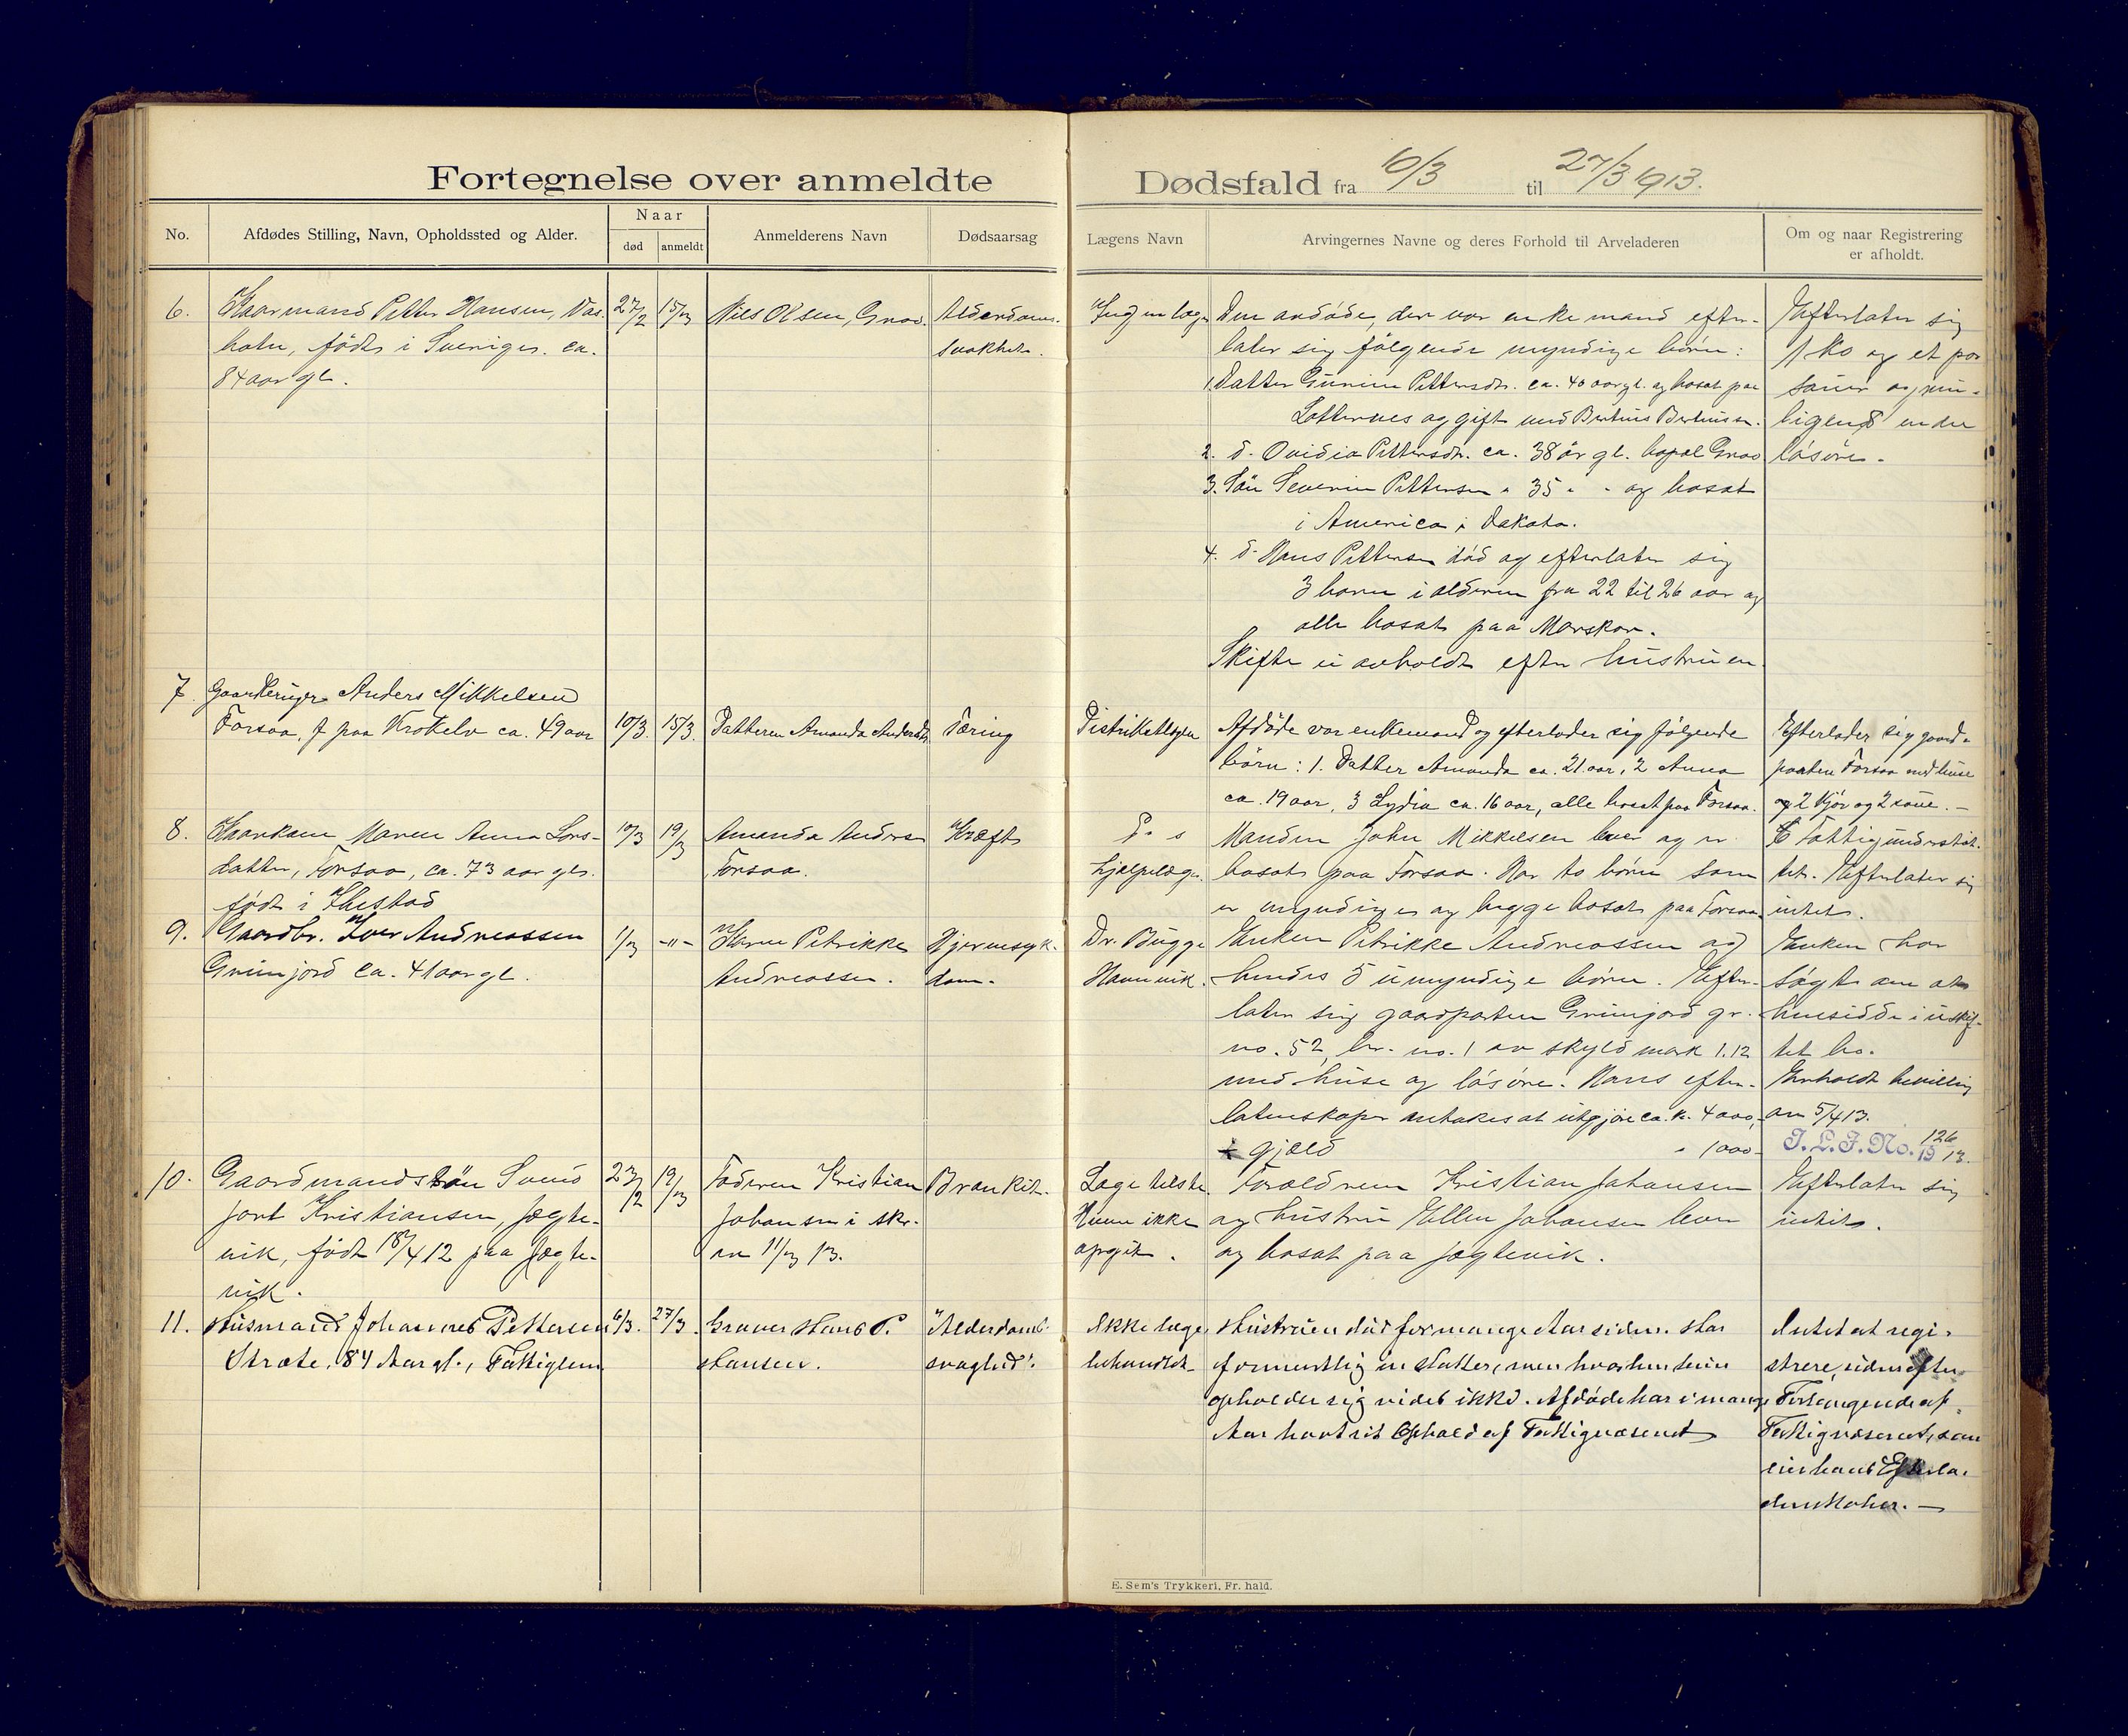 Fortegnelse over anmeldte
Dødsfald fra 10/3 til 27/3 1913.
No.
Afdødes Stilling, Navn, Opholdssted og Alder.
Naar
død
anmeldt
Anmelderens Navn
Dødsaarsag
Lægens Navn
Arvingernes Navne og deres Forhold til Arveladeren
Om og naar Registrering
er afholdt.
6. Kaarmand Petter Hansen, Vas-
hotn, født i Sverige. ca.
84 aar gl.
27/2
15/3
Nils Olsen, Grov.
Alderdoms-
svakhet.
Ingen læge
Den avdøde, der var enkemand efter-
later sig følgende myndige børn:
1. Datter Gurine Pettersdtr. ca. 40 aar gl. og bosat paa
og gift med
2. d- Ovidia Pettersdtr. ca. 38 år gl. bopæl Grov
3. Søn Severin Pettersen " 35 " - og bosat
i America i Dakota.
4. d- Hans Pettersen død og efterlater sig
3 børn i alderen fra 22 til 26 aar og
alle bosat paa
Skifte ei avholdt efter hustruen.
Efterlater sig
1 ko og et par
sauer og mu-
ligens endu
løsøre.
7. Gaardbruger Anders Mikkelsen
Forsaa, f paa Krokelv ca. 49 aar
10/3.
15/3.
Datteren Amanda Andersdtr
Tæring
Distriktslægen
Afdøde var enkemand og efterlader sig følgende
børn: 1. Datter Amanda ca. 21 aar, 2 Anna
ca. 19 aar, 3 Lydia ca. 16 aar, alle bosat paa Forsaa.
Efterlader sig gaard-
parten Forsaa med huse
og 2 Kjør og 2 saue. -
8. Kaarkone Maren Anna Lars-
datter, Forsaa, ca. 73 aar gl.
født i
10/3
19/3
Amanda Anders
Forsaa.
Kræft
hjælpelæge.
Manden John Mikkelsen lever og er
bosat paa Forsaa. Har to børn som
er myndige og begge bosat paa Forsaa.
Fattigunderstøt-
tet. Efterlater sig
intet.
9. Gaardbr. Iver Andreassen
Grunjord ca. 41 aar gl.
1/3
-"-
Karen Petrikke
Andreassen.
Hjernesyk-
dom.
Dr. Bugge
Havnvik.
Enken Petrikke Andreassen og
hendes 5 umyndige børn. Efter-
later sig gaardparten Grunjord gr.
no. 52, br. no. 1 av skyld mark 1.12
med huse og løsøre. Hans efter-
latenskaper antakes at utgjøre ca. kr. 4000,-
÷ gjæld " 1000-
Enken har
søgt om at
hensidde i uskif-
tet bo.
Erholdt bevilling
av 5/4 13.
J. L. J. No. 126/1913.
10. Gaardmandssøn Svend
Jort Kristiansen, Jægte-
vik, født 18/4 12 paa Jægte-
vik.
23/2
19/3
Faderen Kristian
Johansen i skr.
av 11/3 13.
Bronkit.
Læge tilste.
Navn ikke
opgit.
Forældrene Kristian Johansen
og hustru Ellen Johansen lever
og bosat paa Jægtevik.
Efterlater sig
intet.
11. Husmand Johannes Pettersen
Stræte, 84 Aar gl., Fattiglem.
6/3.
27/3.
Graver Hans P.
Hansen.
"Alderdoms-
svaghed".
Ikke læge-
behandlet.
Hustruen død for mange Aar siden. Har
formentlig en Datter, men hvor hun
opholder sig vides ikke. Afdøde har i mange
Aar havt sit Ophold af Fattigvæsenet
Intet at regi-
strere, uden efter
Forlangende af
Fattigvæsenet, som
eier hans Efterla-
denskaber. -
E. Sem's Trykkeri, Fr. hald.